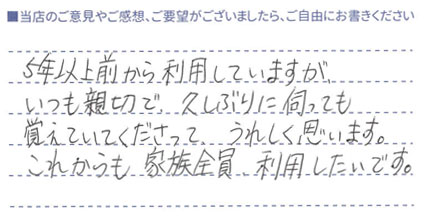 ■当店のご意見やご感想、ご要望がございましたら、ご自由にお書きください
5年以上前から利用していますが、
いつも親切で、久しぶりに伺っても
覚えていてくださって、うれしく思います。
これからも家族全員、利用したいです。